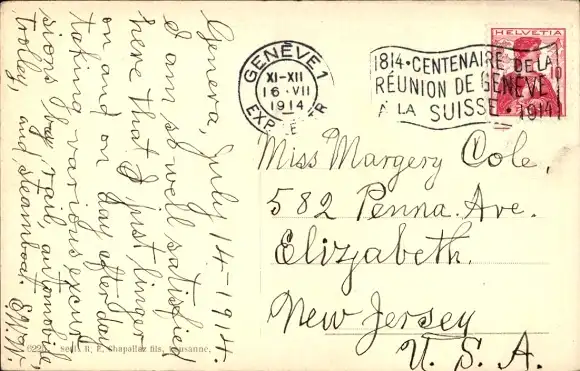 Geneva, July 14-1914.
I am so well satisfied
here that I just linger
on and on day after day
taking various excur
sions by rail, automobile,
trolley, and steamboat.
GENÈVE 1
XI-XII
16·VII
1914
1814·CENTENAIRE DE LA
RÉUNION DE GENÈVE
À LA SUISSE·1914
HELVETIA
10
Miss Margery Cole,
582 Penna. Ave.
Elizabeth.
New Jersey
U. S. A.
Chapallaz fils, Lausanne.